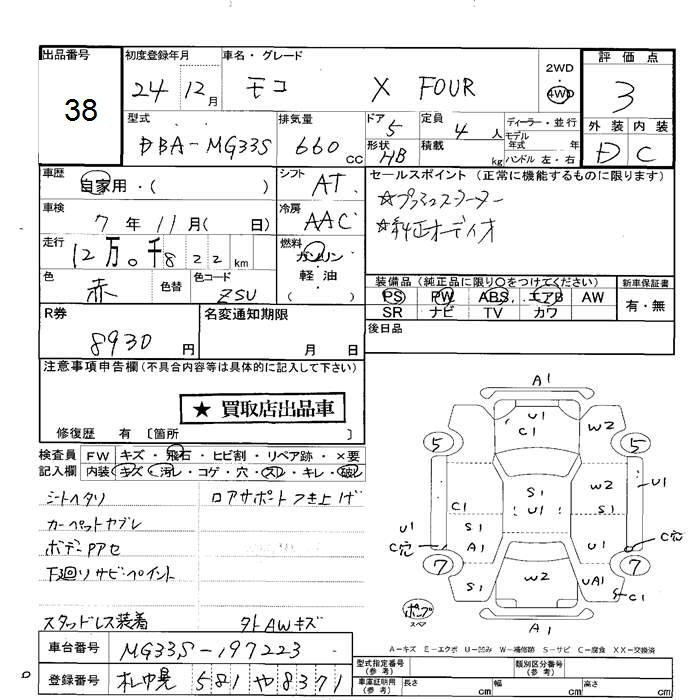 出品番号
38
初度登録年月
24年12月
車名・グレード
モコ X FOUR
2WD
・
4WD
評価点
3
外装 内装
D C
型式
DBA-MG33S
排気量
660cc
ドア 5
形状 HB
定員 4人
積載 kg
ディーラー・並行
モデル年式
ハンドル 左・右
車歴
自家用・( )
シフト AT
車検
7年11月( 日)
冷房 AAC
走行
12万0千822km
燃料
ガソリン
軽油
( )
色 赤
色替
色コード ZSU
セールスポイント (正常に機能するものに限ります)
☆プッシュスターター
☆純正オーディオ
装備品 (純正品に限り○をつけてください)
PS PW ABS エアB AW
SR ナビ TV カワ
新車保証書
有・無
R券
8930円
名変通知期限
月 日
後日品
注意事項申告欄(不具合内容等は具体的に記入して下さい)
★ 買取店出品車
修復歴 有 〔箇所 〕
検査員記入欄
FW キズ・飛石・ヒビ割・リペア跡・×要
内装 キズ・汚レ・コゲ・穴・スレ・キレ・破レ
シートヘタリ
ロアサポート つき上げ
カーペットヤブレ
ボデーPアセ
下廻りサビ・ペイント
スタッドレス装着
タトAWキズ
車台番号 MG33S-197223
登録番号 札幌 581 や 8371
A1
U1
C1
W2
5
5
S1
U1
W2
S1
U1
C1
U1
S1
A1
C穴
U1
C穴
7
7
S1
W2
UA1
C1
A1
ポンプ
スペア
A－キズ E－エクボ U－凹み W－補修跡 S－サビ C－腐食 XX－交換済
型式指定番号
(参考)
類別区分番号
(参考)
車庫証明用
(参考)
長さ cm 幅 cm 高さ cm